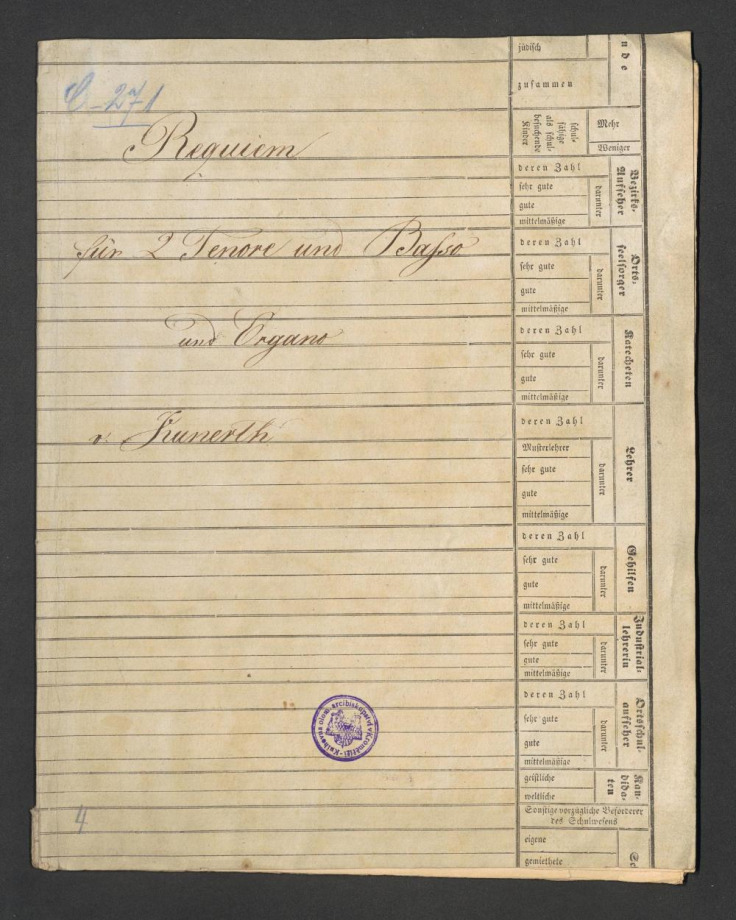 C-271
Requiem
für 2 Tenore und Basso
und Organo
v. Kunerth
4
nde
jüdisch
zusammen
schul-
fähige
als schul-
besuchende
Kinder
Mehr
Weniger
Bezirks-
Aufseher
deren Zahl
sehr gute
gute
mittelmäßige
darunter
Orts-
seelsorger
deren Zahl
sehr gute
gute
mittelmäßige
darunter
Katecheten
deren Zahl
sehr gute
gute
mittelmäßige
darunter
Lehrer
deren Zahl
Musterlehrer
sehr gute
gute
mittelmäßige
darunter
Gehilfen
deren Zahl
sehr gute
gute
mittelmäßige
darunter
Industrial-
lehrerin
deren Zahl
sehr gute
gute
mittelmäßige
darunter
Ortsschul-
aufseher
deren Zahl
sehr gute
gute
mittelmäßige
darunter
Kan-
dida-
ten
geistliche
weltliche
Sonstige vorzügliche Beförderer
des Schulwesens
eigene
gemiethete
Sc